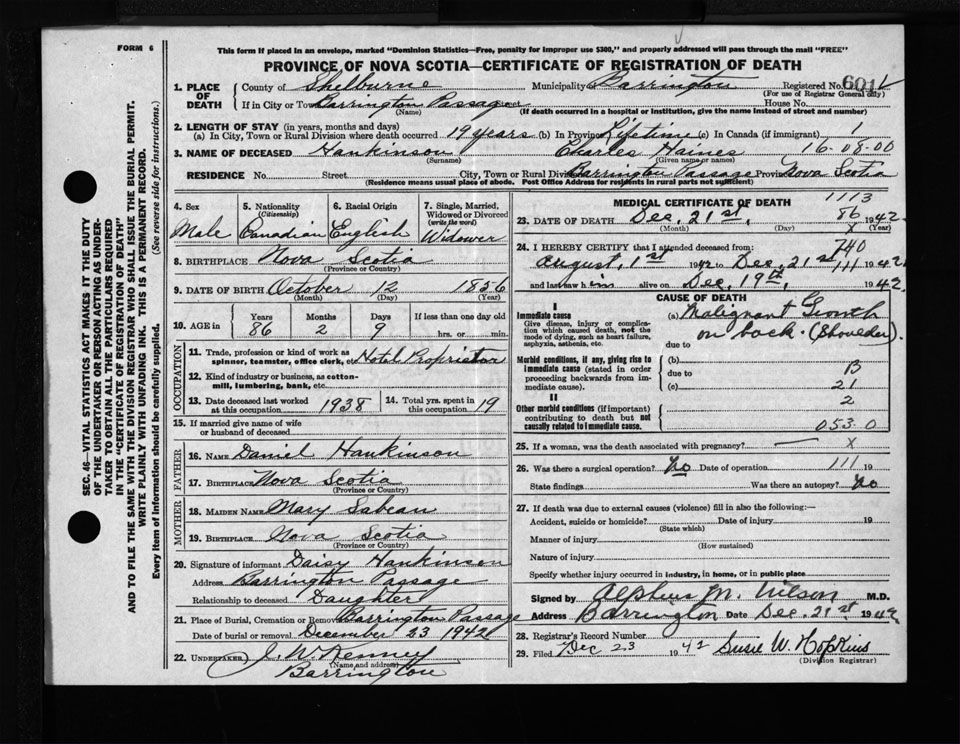 FORM 6
This form if placed in an envelope, marked "Dominion Statistics—Free, penalty for improper use $300," and properly addressed will pass through the mail "FREE"
PROVINCE OF NOVA SCOTIA—CERTIFICATE OF REGISTRATION OF DEATH
1. PLACE OF DEATH
County of Shelburne Municipality Barrington Registered No. 601
(For use of Registrar General only)
If in City or Town Barrington Passage House No.
(Name) (If death occurred in a hospital or institution, give the name instead of street and number)
2. LENGTH OF STAY (in years, months and days)
(a) In City, Town or Rural Division where death occurred 19 years (b) In Province Lifetime (c) In Canada (if immigrant) 1
3. NAME OF DECEASED Hankinson Charles Haines 16-08-00
(Surname) (Given name or names)
RESIDENCE No. Street City, Town or Rural Division Barrington Passage Province Nova Scotia
(Residence means usual place of abode. Post Office Address for residents in rural parts not sufficient)
4. Sex
Male
5. Nationality
(Citizenship)
Canadian
6. Racial Origin
English
7. Single, Married, Widowed or Divorced
(write the word)
Widower
8. BIRTHPLACE Nova Scotia
(Province or Country)
9. DATE OF BIRTH October 12 1856
(Month) (Day) (Year)
10. AGE in
Years Months Days If less than one day
86 2 9 hrs. or min.
OCCUPATION
11. Trade, profession or kind of work as spinner, teamster, office clerk, etc. Hotel Proprietor
12. Kind of industry or business, as cotton-mill, lumbering, bank, etc.
13. Date deceased last worked at this occupation 1938
14. Total yrs. spent in this occupation 19
15. If married give name of wife or husband of deceased
FATHER
16. NAME Daniel Hankinson
17. BIRTHPLACE Nova Scotia
(Province or Country)
MOTHER
18. MAIDEN NAME Mary Sabean
19. BIRTHPLACE Nova Scotia
(Province or Country)
20. Signature of informant Daisy Hankinson
Address Barrington Passage
Relationship to deceased Daughter
21. Place of Burial, Cremation or Removal Barrington Passage
Date of burial or removal December 23 1942
22. UNDERTAKER J. W. Kenney
(Name and address)
Barrington
MEDICAL CERTIFICATE OF DEATH
1113
23. DATE OF DEATH Dec. 21st, 86 1942
(Month) (Day) X (Year)
24. I HEREBY CERTIFY that I attended deceased from: 740
August, 1st 1942 to Dec, 21st 111 1942
and last saw him alive on Dec, 19th, 1942.
CAUSE OF DEATH
I
Immediate cause
Give disease, injury or complication which caused death, not the mode of dying, such as heart failure, asphyxia, asthenia, etc.
(a) Malignant Growth
on back. (Shoulder).
due to
Morbid conditions, if any, giving rise to immediate cause (stated in order proceeding backwards from immediate cause).
(b) B
due to
(c) 21
II
Other morbid conditions (if important) contributing to death but not causally related to immediate cause.
2
053-0
25. If a woman, was the death associated with pregnancy? — X
26. Was there a surgical operation? No Date of operation 111 19
State findings Was there an autopsy? No
27. If death was due to external causes (violence) fill in also the following:—
Accident, suicide or homicide? Date of injury 19
(State which)
Manner of injury
(How sustained)
Nature of injury
Specify whether injury occurred in industry, in home, or in public place
Signed by Alpheus M. Wilson M.D.
Address Barrington Date Dec. 21st 1942
28. Registrar's Record Number
29. Filed Dec 23 1942 Susie W. Hopkins
(Division Registrar)
SEC. 46—VITAL STATISTICS ACT MAKES IT THE DUTY
OF THE UNDERTAKER OR PERSON ACTING AS UNDER-
TAKER TO OBTAIN ALL THE PARTICULARS REQUIRED
IN THE "CERTIFICATE OF REGISTRATION OF DEATH"
AND TO FILE THE SAME WITH THE DIVISION REGISTRAR WHO SHALL ISSUE THE BURIAL PERMIT.
WRITE PLAINLY WITH UNFADING INK. THIS IS A PERMANENT RECORD.
Every item of Information should be carefully supplied. (See reverse side for instructions.)